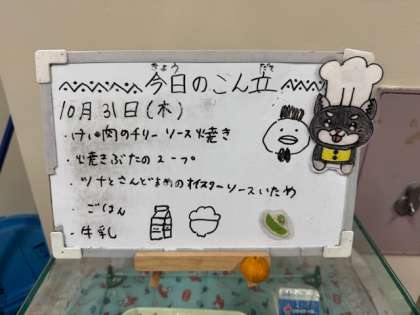 きょう　だて
今日のこん立
10月31日(木)
・けい肉のチリーソース焼き
・焼きぶたのスープ
・ツナとさんどまめのオイスターソースいため
・ごはん
・牛乳